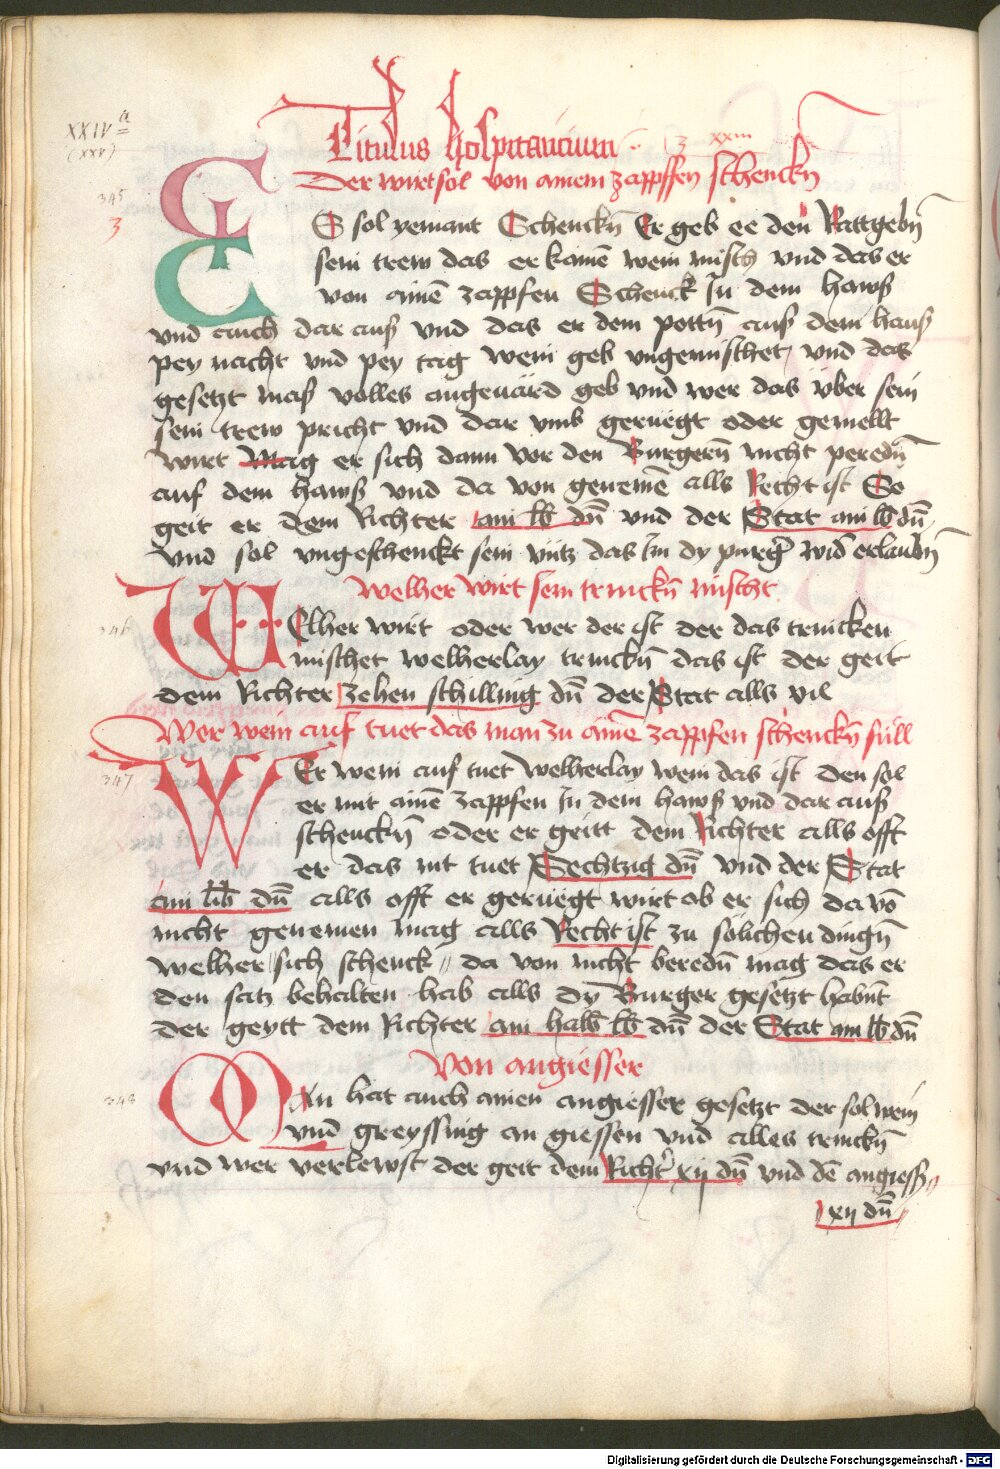 XXIV a
(XXV)
Titulus hospitaucium · 3 xxiii
Der wirt sol von ainem zapffen schenckn̄
345
3
ES sol yemant Schenckn̄ Er geb ee den Rattgebn̄
sein trew das er kainē wein misch vnd das er
von ainē zappfen Schenck In dem hawß
vnd auch dar auß vnd das er dem pottn̄ auß dem hauß
pey nacht vnd pey tag wein geb vngemischet / vnd das
gesetzt mas volles angeuärd geb vnd wer das vber sein
sein trew pricht vnd dar vmb geruegt oder gemellt
wirt Mag er sich dann vor den Burgern̄ nicht peredn̄
auf dem hawß vnd da von genemē alls Recht ist So
geit er dem Richter ain lb dn̄ vnd der Stat ain lb dn̄
vnd sol vngeschenckt sein vntz das Im dy purḡ wid erlaubn̄
Welher wirt sein trinckn̄ mischt
346
WElher wirt oder wer der ist der das trincken
mischet welherlay trinckn̄ das ist der geit
dem Richter zehen schilling dn̄ der Stat alls vil
Wer wein auf tuet das man zu ainē zappfen schenckn̄ sull
347
WEr wein auf tuet welherlay wein das ist den sol
er mit ainē zappfen In dem hawß vnd dar auß
schenckn̄ oder er geitt dem Richter alls offt
er das nit tuet Sechtzig dn̄ vnd der Stat
ain lib dn̄ alls offt er geruegt wirt ob er sich da vō
nicht genemen mag alls Recht ist zu sölichen dingn̄
welher sich schenck // da von nicht beredn̄ mag das er
den satz behalten hab alls dy Burger gesetzt habnt
der geytt dem Richter ain halb lb dn̄ der Stat ain lb dn̄
Von angiesser
348
MAn hat auch ainen angiesser gesetzt der sol wein
vnd greyssing an giessen vnd alles trinckn̄
vnd wer verlewst der geit dem Richt̄ xij dn̄ vnd dē angiess̄
xij dn̄
Digitalisierung gefördert durch die Deutsche Forschungsgemeinschaft - DFG